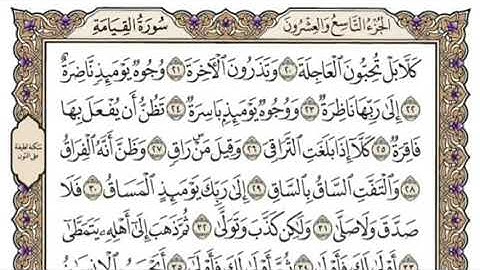 الجزء التاسع والعشرون
سورة القيامة
كَلَّا بَلْ تُحِبُّونَ ٱلْعَاجِلَةَ ٢٠ وَتَذَرُونَ ٱلْأَخِرَةَ ٢١ وُجُوهٌ يَوْمَئِذٍ نَّاضِرَةٌ
٢٢ إِلَىٰ رَبِّهَا نَاظِرَةٌ ٢٣ وَوُجُوهٌ يَوْمَئِذٍۭ بَاسِرَةٌ ٢٤ تَظُنُّ أَن يُفْعَلَ بِهَا
فَاقِرَةٌ ٢٥ كَلَّآ إِذَا بَلَغَتِ ٱلتَّرَاقِىَ ٢٦ وَقِيلَ مَنْ رَاقٍ ٢٧ وَظَنَّ أَنَّهُ ٱلْفِرَاقُ
٢٨ وَٱلْتَفَّتِ ٱلسَّاقُ بِٱلسَّاقِ ٢٩ إِلَىٰ رَبِّكَ يَوْمَئِذٍ ٱلْمَسَاقُ ٣٠ فَلَا
صَدَّقَ وَلَا صَلَّىٰ ٣١ وَلَٰكِن كَذَّبَ وَتَوَلَّىٰ ٣٢ ثُمَّ ذَهَبَ إِلَىٰٓ أَهْلِهِۦ يَتَمَطَّىٰٓ
٣٣ أَوْلَىٰ لَكَ فَأَوْلَىٰ ٣٤ ثُمَّ أَوْلَىٰ لَكَ فَأَوْلَىٰٓ ٣٥ أَيَحْسَبُ ٱلْإِنسَٰنُ
سكتة لطيفة
على النون